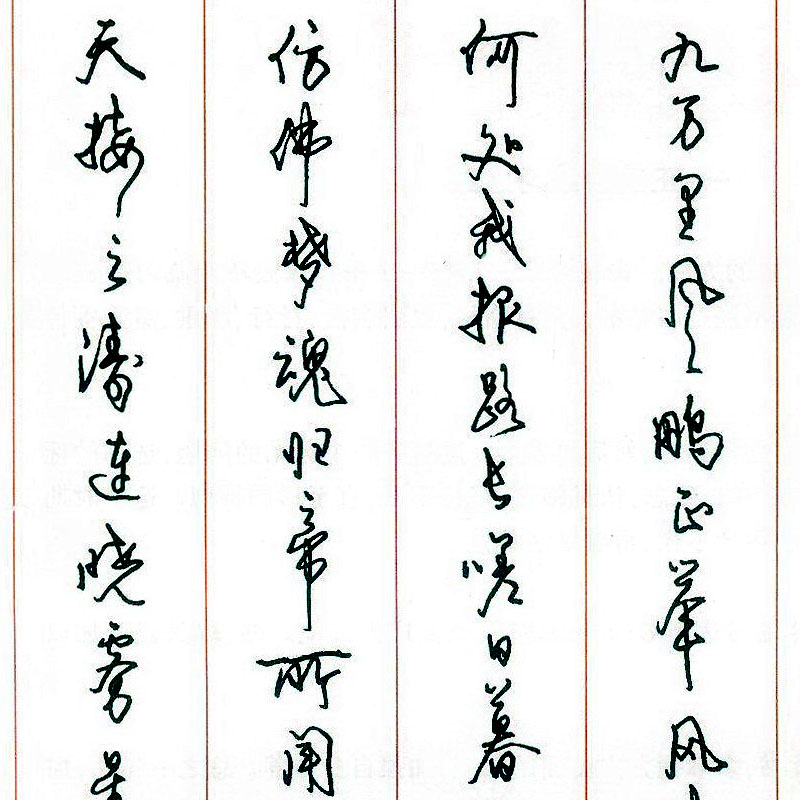 天接云涛连晓雾星
仿佛梦魂归帝所闻
何处我报路长嗟日暮
九万里风鹏正举风